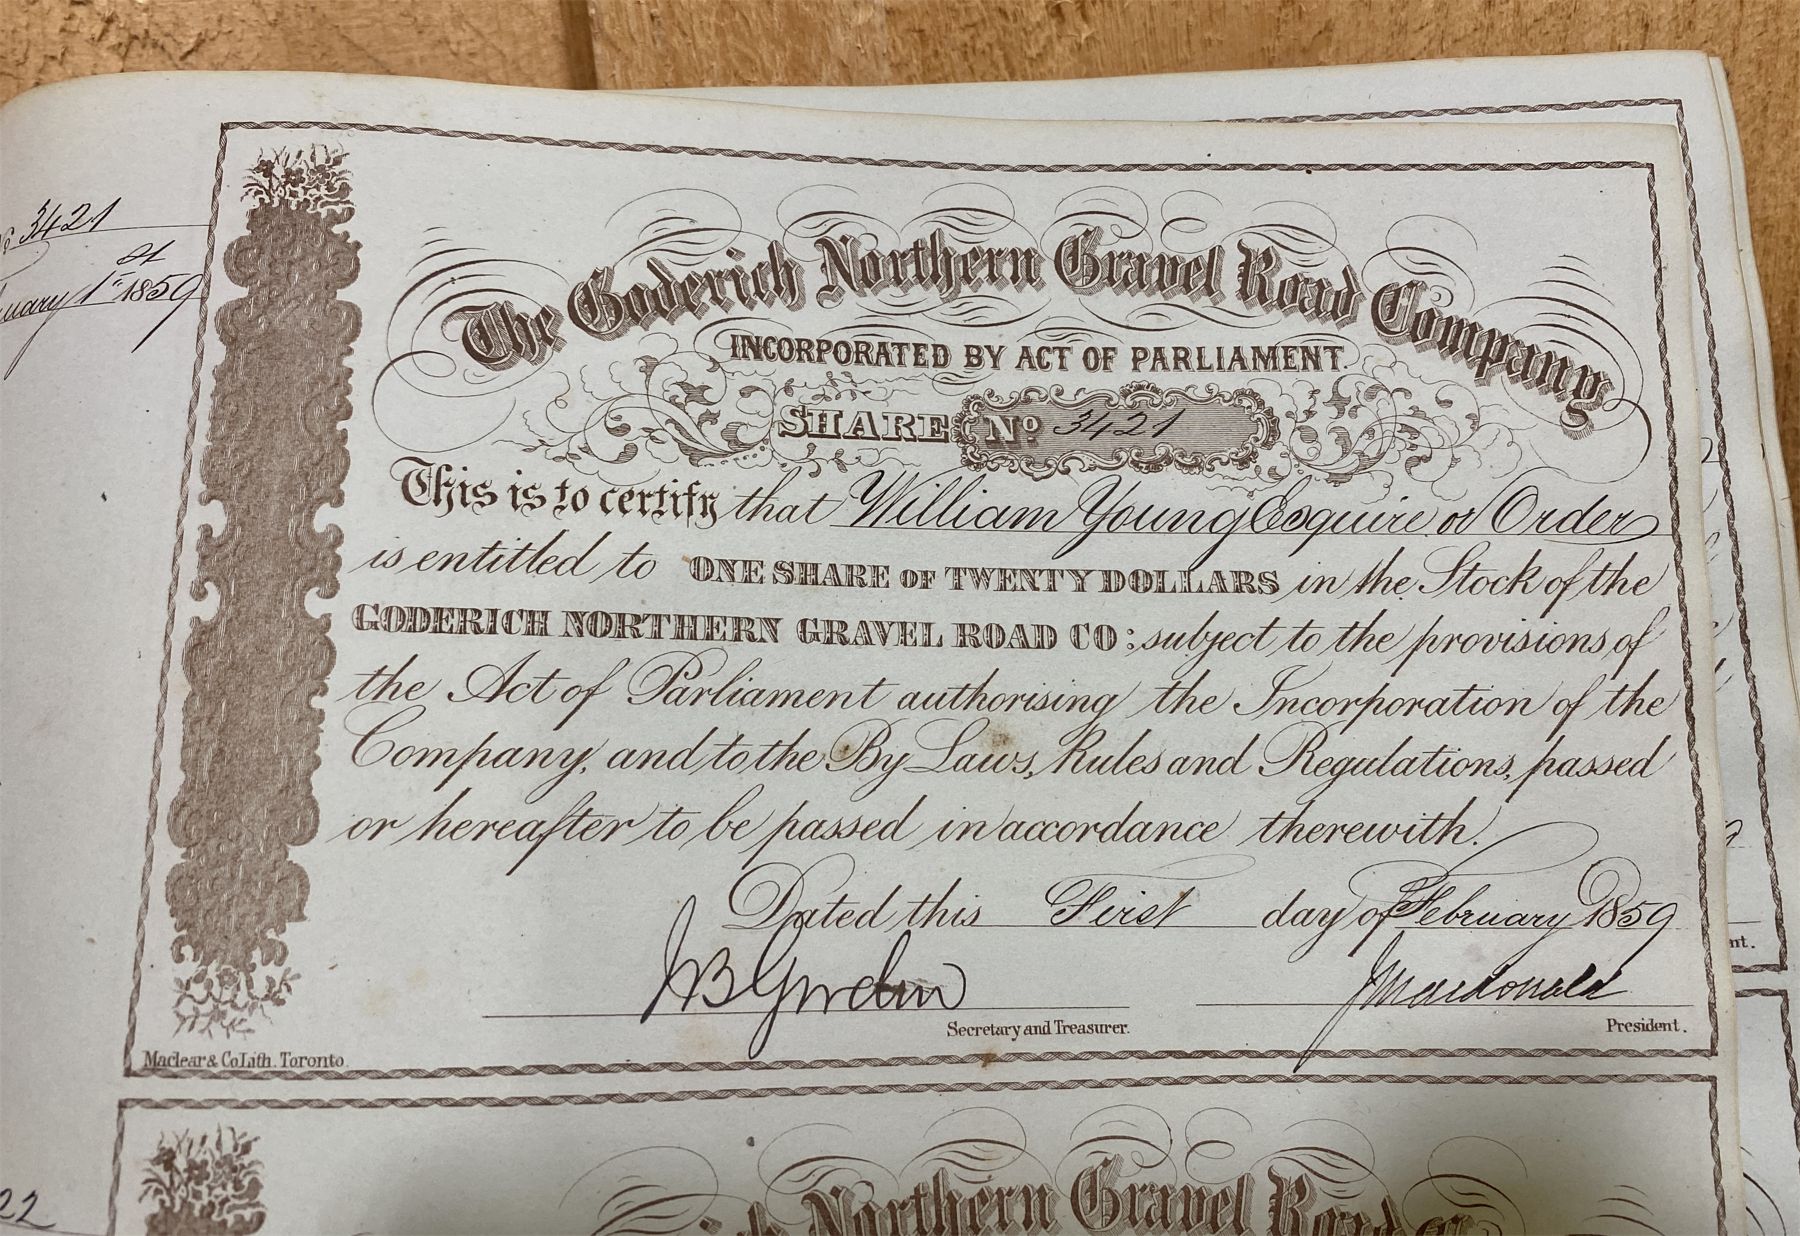 3421
st
uary 1 1859
The Goderich Northern Gravel Road Company
INCORPORATED BY ACT OF PARLIAMENT.
SHARE No 3421
This is to certify that William Young Esquire or Order
is entitled to ONE SHARE OF TWENTY DOLLARS in the Stock of the
GODERICH NORTHERN GRAVEL ROAD CO: subject to the provisions of
the Act of Parliament authorising the Incorporation of the
Company, and to the By Laws, Rules and Regulations, passed
or hereafter to be passed in accordance therewith.
Dated this First day of February 1859
J B Gordon
J Macdonald
Secretary and Treasurer.
President.
Maclear & Co Lith. Toronto.
nt.
22
Northern Gravel Road